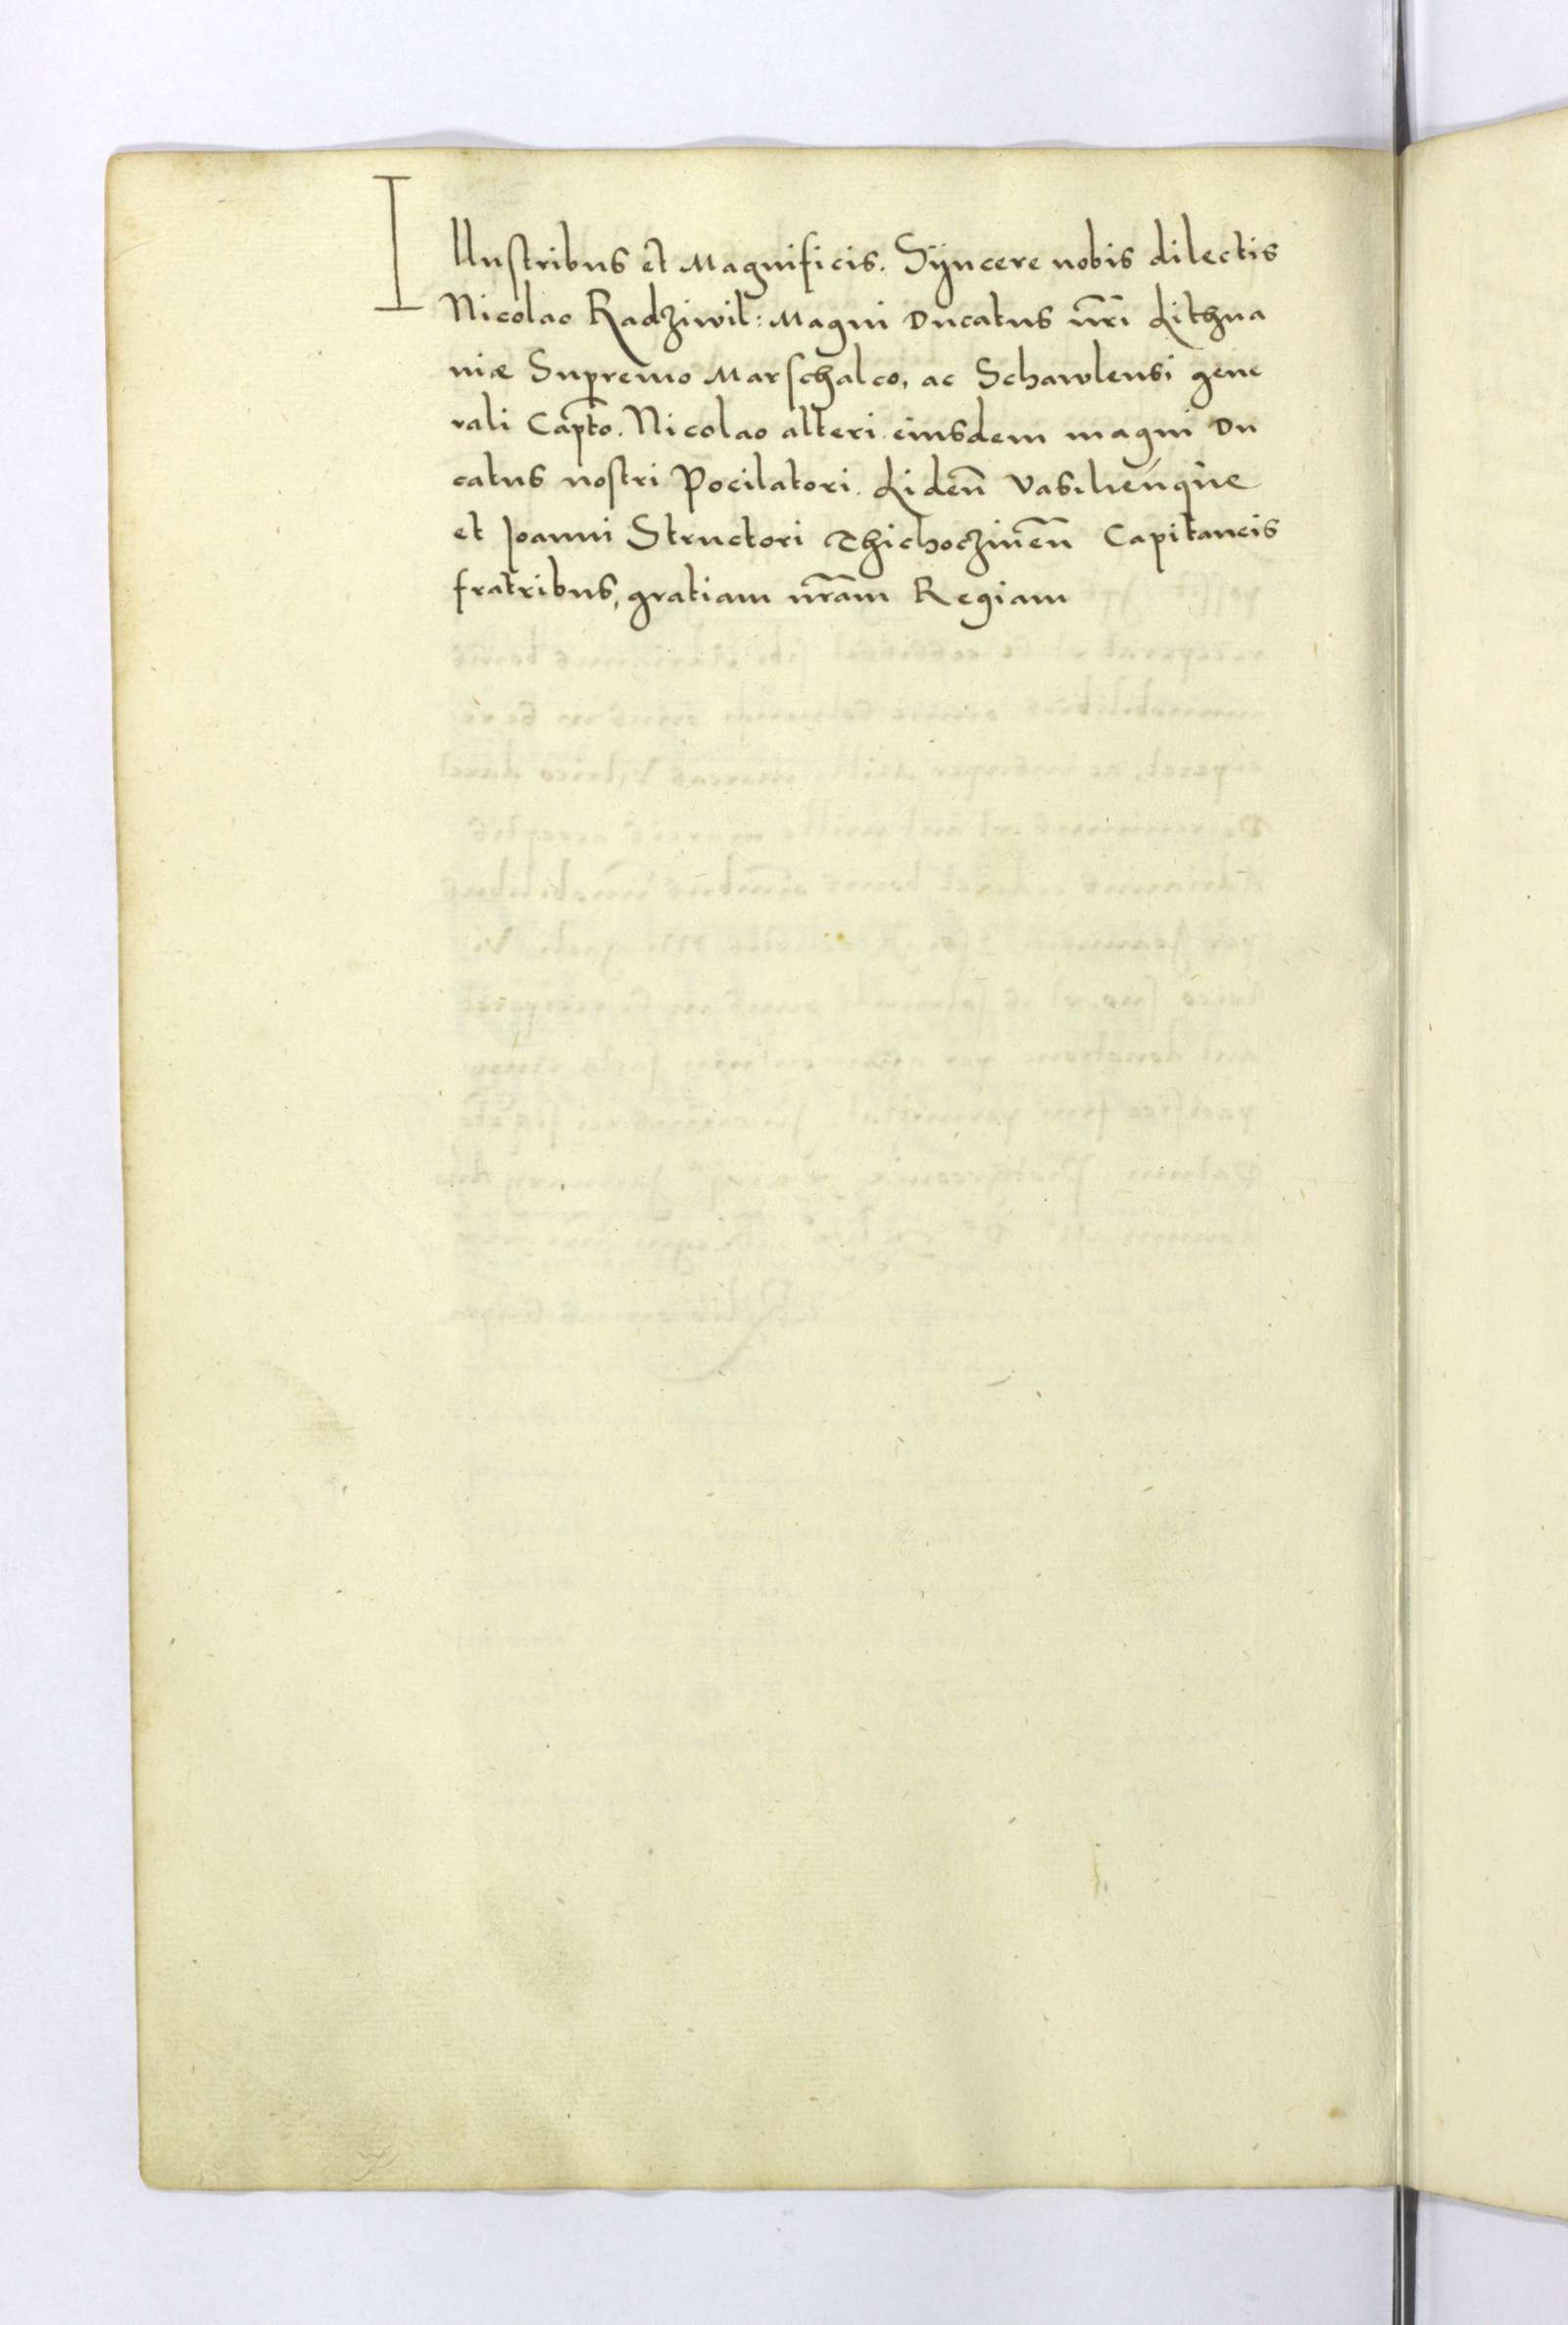 Illustribus et Magnificis. Sÿncere nobis dilectis
Nicolao Radziwil: Magni Ducatus nr̃i Lithua
niæ Supremo Marschalco, ac Schawlensi gene
rali Capt̃o. Nicolao alteri eiusdem magni Du
catus nostri Pocilatori. Lideñ Vasilieñque
et Joanni Structori Thichoczineñ Capitaneis
fratribus, gratiam nr̃am Regiam